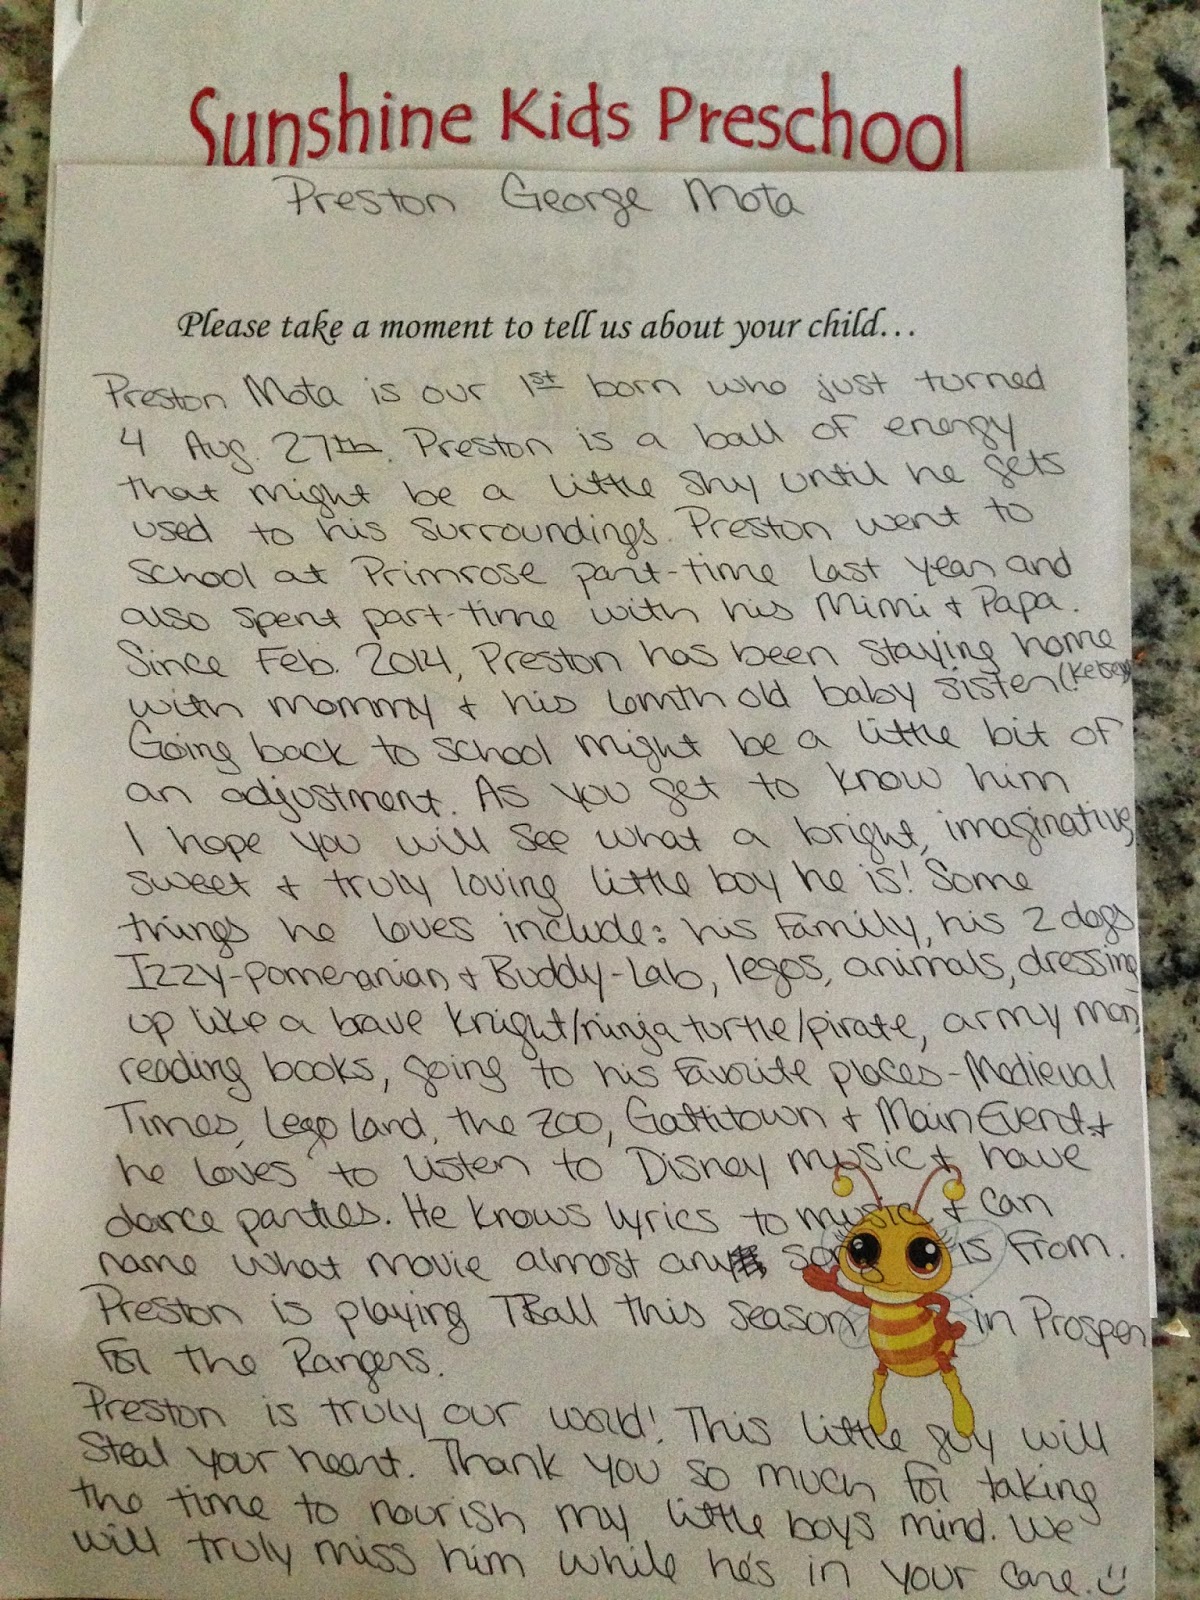 Sunshine Kids Preschool
Preston George Mota
Please take a moment to tell us about your child...
Preston Mota is our 1st born who just turned
4 Aug. 27th. Preston is a ball of energy
that might be a little shy until he gets
used to his surroundings. Preston went to
school at Primrose part-time last year and
also spent part-time with his Mimi & Papa.
Since Feb. 2014, Preston has been staying home
with mommy & his 6mth old baby sister (Kelsey)
Going back to school might be a little bit of
an adjustment. As you get to know him
I hope you will see what a bright, imaginative,
sweet & truly loving little boy he is! Some
things he loves include: his family, his 2 dogs
Izzy-pomeranian & Buddy-Lab, legos, animals, dressing
up like a brave knight/ninja turtle/pirate, army men,
reading books, going to his favorite places-Medieval
Times, Lego land, the zoo, Gattitown & Main Event &
he loves to listen to Disney music & have
dance parties. He knows lyrics to music & can
name what movie almost any song is from.
Preston is playing TBall this season in Prosper
for the Rangers.
Preston is truly our world! This little guy will
steal your heart. Thank you so much for taking
the time to nourish my little boys mind. We
will truly miss him while he's in your care. :)